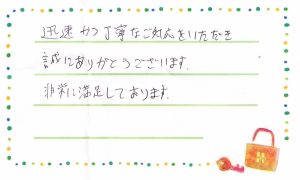 迅速かつ丁寧なご対応をいただき
誠にありがとうございます.
非常に満足しております.